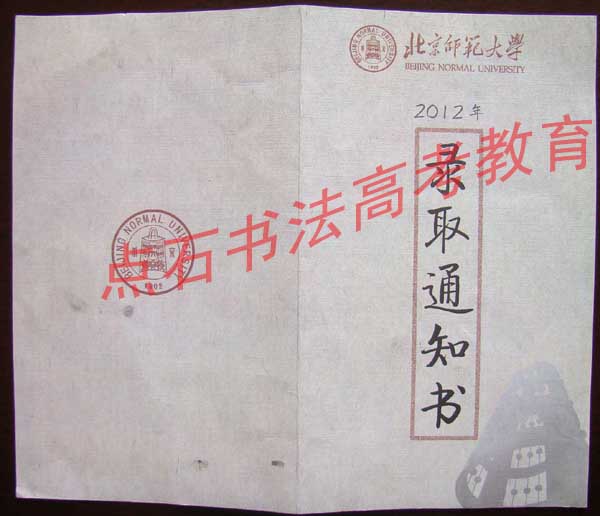 北京师范大学
BEIJING NORMAL UNIVERSITY
2012年
录取通知书
点石书法高考教育
BEIJING NORMAL UNIVERSITY
1902
BEIJING NORMAL UNIVERSITY
1902